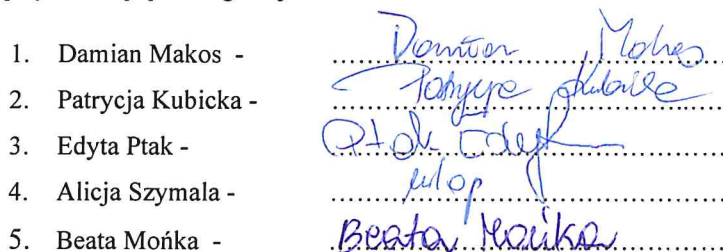 1. Damian Makos - Damian Makos
2. Patrycja Kubicka - Patrycja Kubicka
3. Edyta Ptak - Ptak Edyta
4. Alicja Szymala - urlop
5. Beata Mońka - Beata Mońka